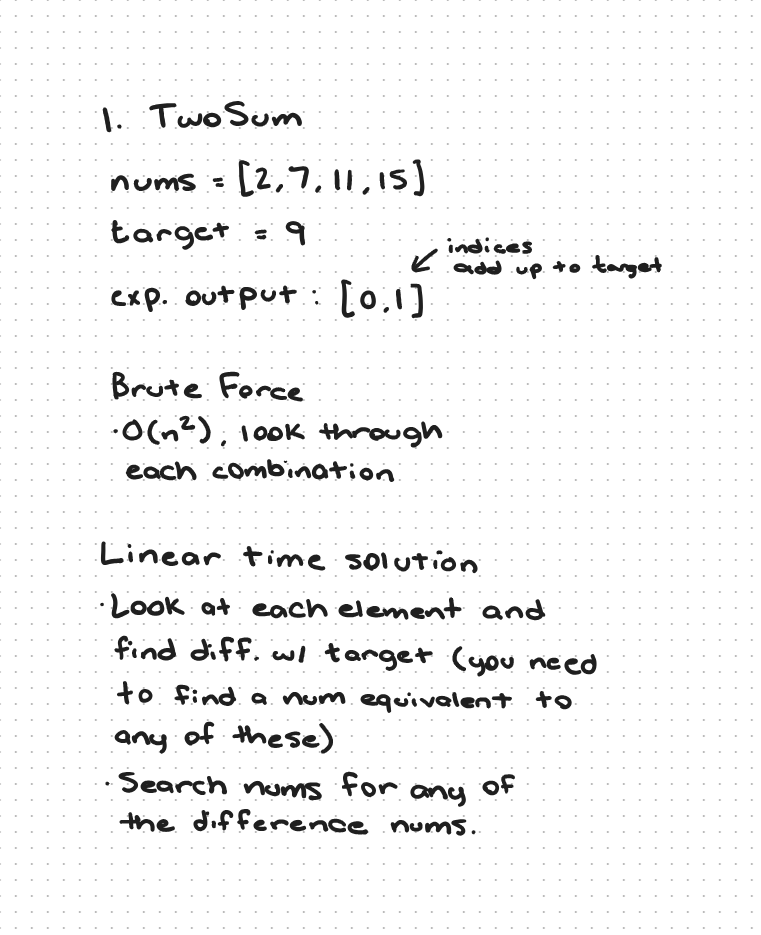 1. TwoSum
nums = [2,7,11,15]
target = 9
indices
add up to target
exp. output: [0,1]
Brute Force
·O(n²), look through
each combination
Linear time solution
·Look at each element and
find diff. w/ target (you need
to find a num equivalent to
any of these)
·Search nums for any of
the difference nums.